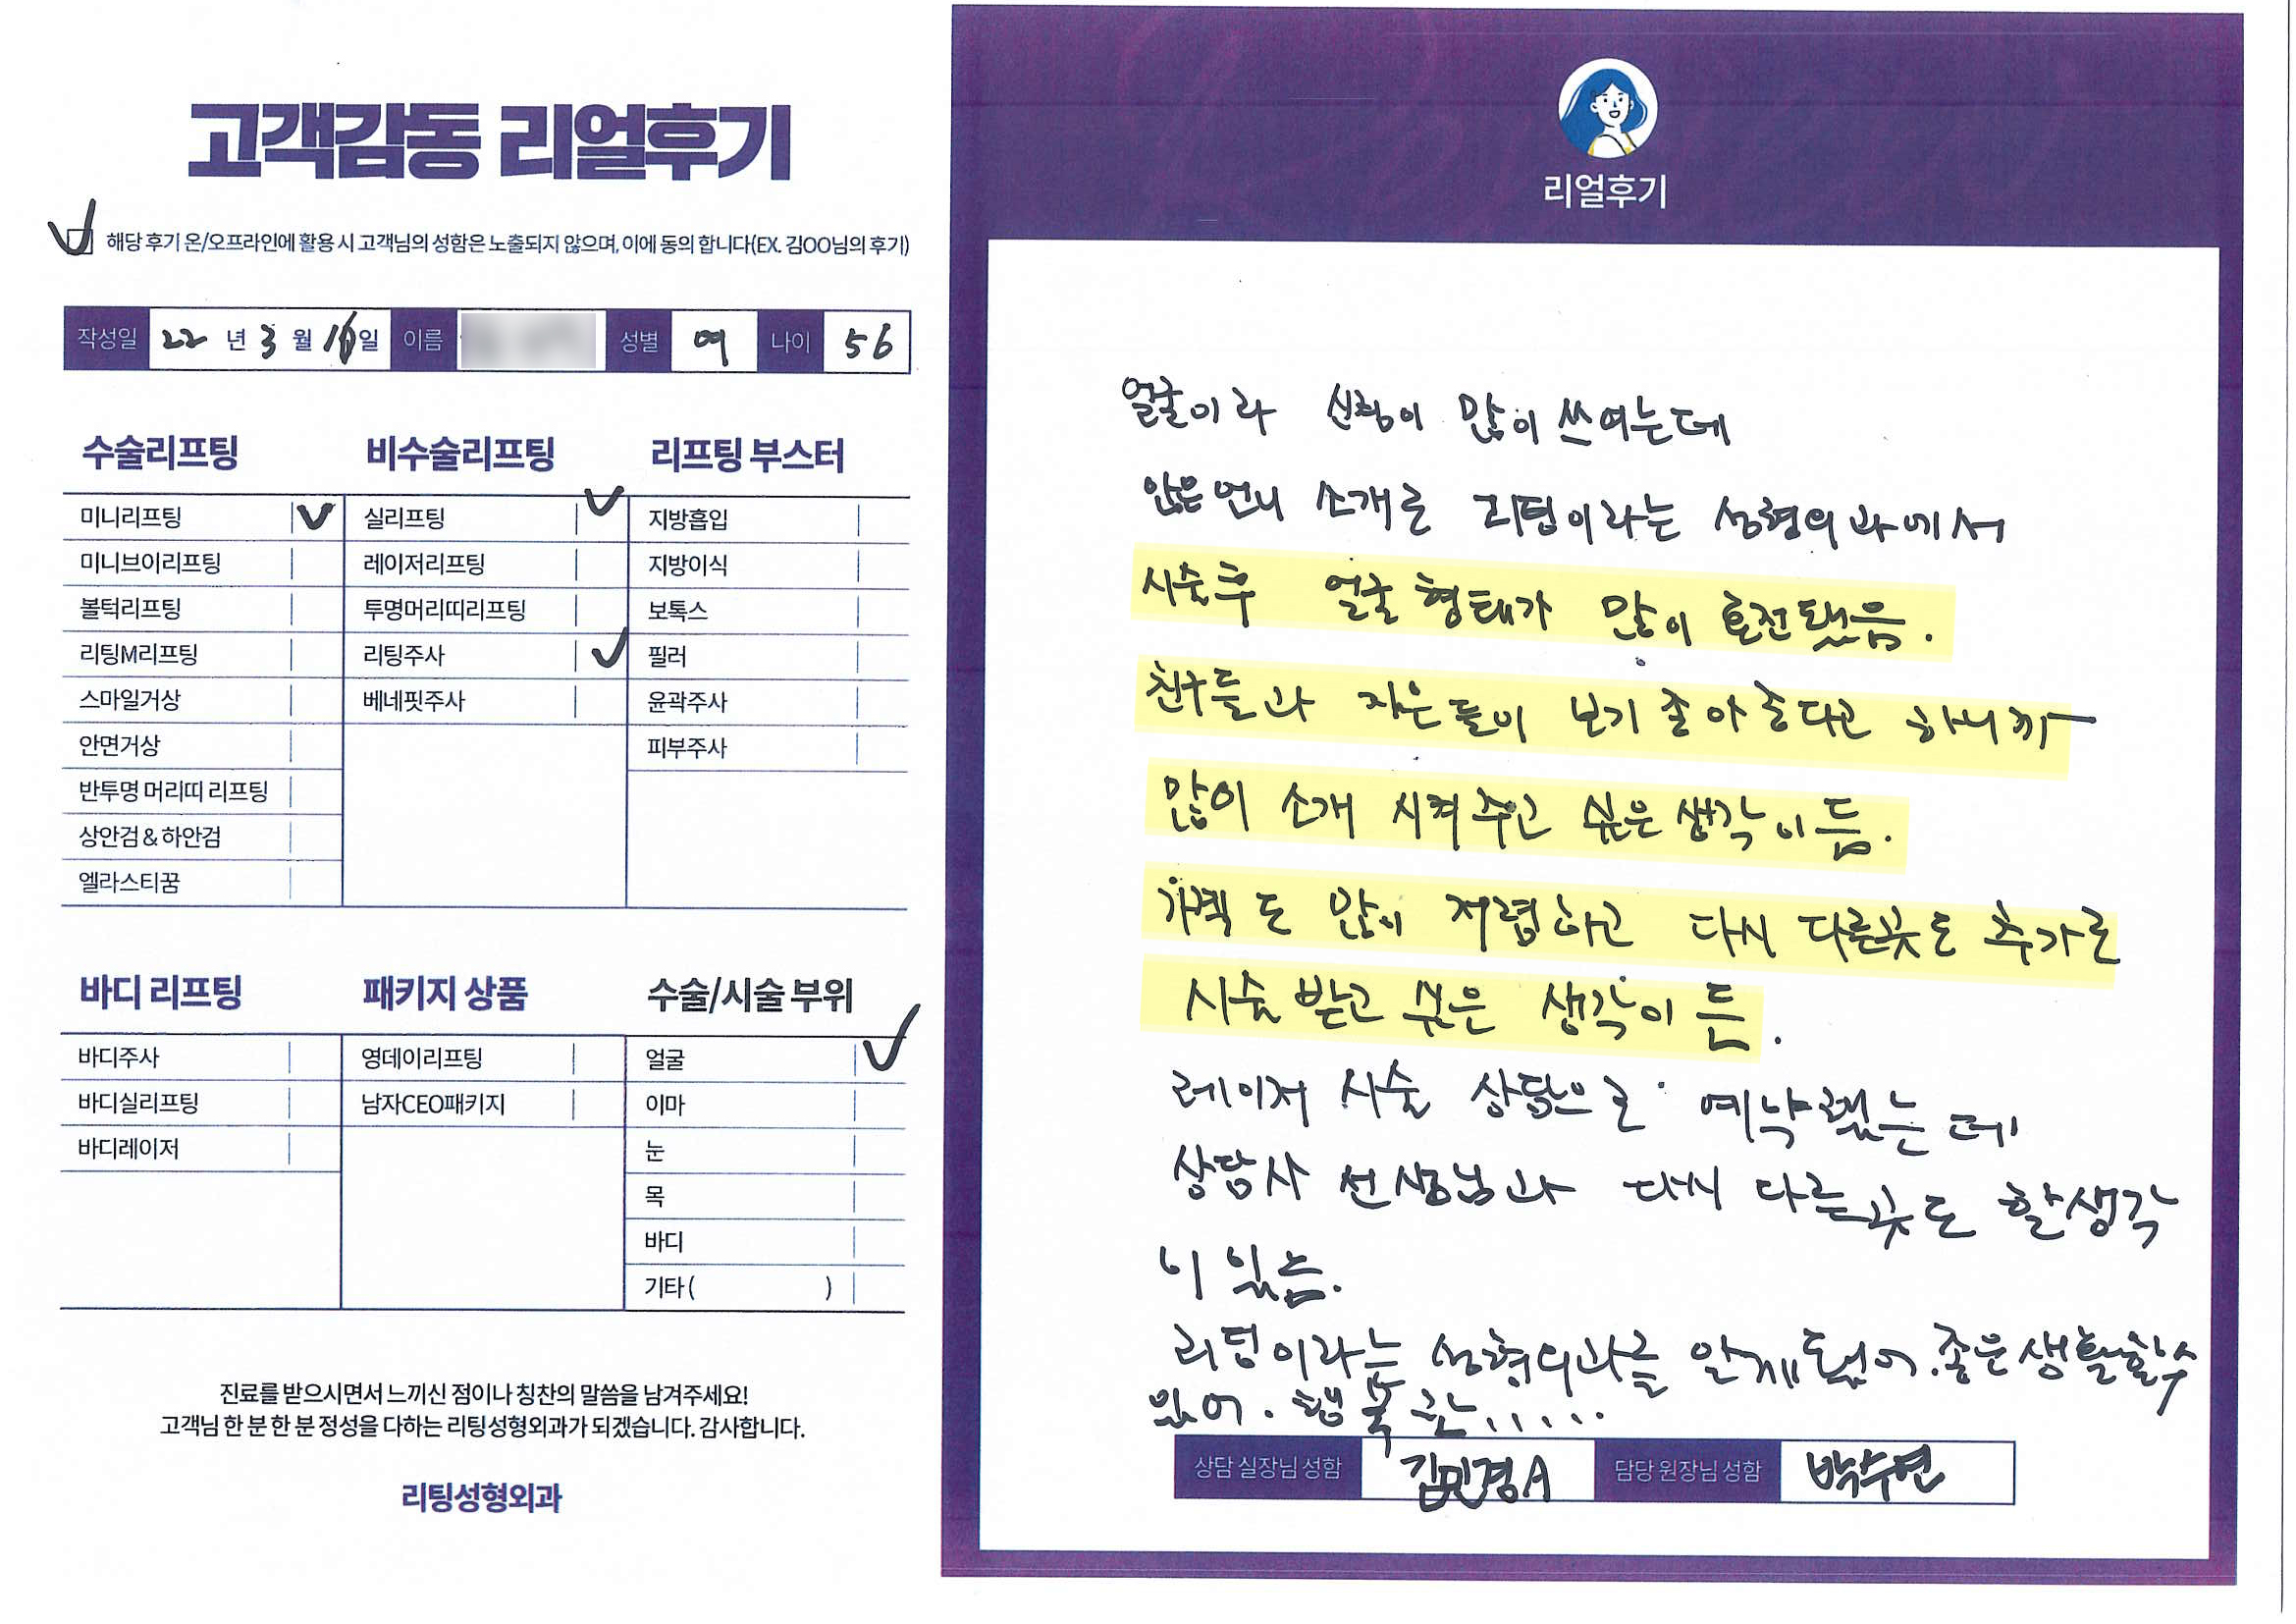 고객감동 리얼후기
해당 후기 온/오프라인에 활용 시 고객님의 성함은 노출되지 않으며, 이에 동의 합니다(EX. 김OO님의 후기)
작성일 22 년 3 월 일 이름 성별 여 나이 56
수술리프팅
미니리프팅
미니브이리프팅
볼턱리프팅
리팅M리프팅
스마일거상
안면거상
반투명 머리띠 리프팅
상안검 & 하안검
엘라스티꿈
비수술리프팅
실리프팅
레이저리프팅
투명머리띠리프팅
리팅주사
베네핏주사
리프팅 부스터
지방흡입
지방이식
보톡스
필러
윤곽주사
피부주사
바디 리프팅
바디주사
바디실리프팅
바디레이저
패키지 상품
영데이리프팅
남자CEO패키지
수술/시술 부위
얼굴
이마
눈
목
바디
기타 ( )
진료를 받으시면서 느끼신 점이나 칭찬의 말씀을 남겨주세요!
고객님 한 분 한 분 정성을 다하는 리팅성형외과가 되겠습니다. 감사합니다.
리팅성형외과
리얼후기
얼굴이라 신청이 많이 쓰여는데
않은 언니 소개로 리팅이라는 성형외과에서
시술후 얼굴 형태가 많이 호전됐음.
친구들과 지은들이 보기 좋아졌다고 하니까
많이 소개 시켜주고 싶은 생각이듬.
가격도 많이 저렴하고 다시 다른곳도 추가로
시술 받고 싶은 생각이 든.
레이저 시술 상담으로 예약했는데
상담사 선생님과 다시 다른곳도 할생각
이 있음.
리팅이라는 성형외과를 알게 되었어. 좋은 생활할수
있어. 행복한.....
상담 실장님 성함 김민경A 담당 원장님 성함 박수연